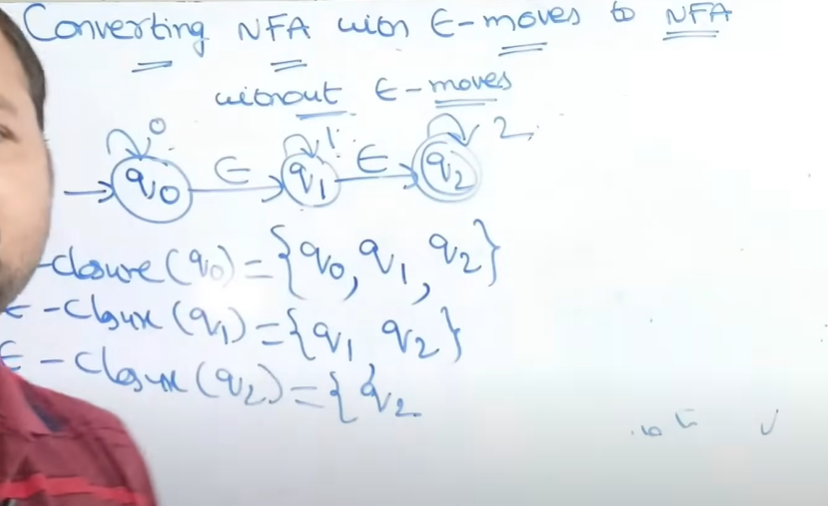 Converting NFA with ∈-moves to NFA
without ∈-moves
0 1 2
q0 ∈ q1 ∈ q2
-closure(q0)={q0, q1, q2}
∈-closure(q1)={q1, q2}
∈-closure(q2)={q2